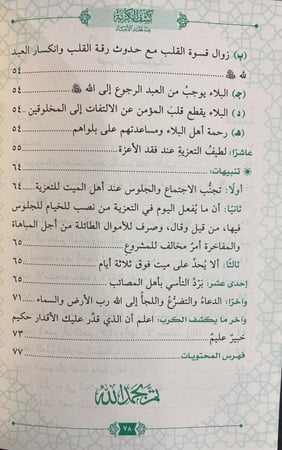 كشف الكربة
عند فقد الأحبة
(ب) زوال قسوة القلب مع حدوث رقة القلب وانكسار العبد
لله ﷻ ٥٤
(ج) البلاء يوجبُ من العبد الرجوع إلى الله ﷻ ٥٤
(د) البلاء يقطع قلبَ المؤمن عن الالتفات إلى المخلوقين ٥٤
(هـ) رحمة أهل البلاء ومساعدتهم على بلواهم ٥٤
عاشرًا: لطيفُ التعزيةِ عند فقد الأعزة ٥٥
تنبيهات:
أولًا: تجنُّب الاجتماع والجلوس عند أهل الميت للتعزية ٦٤
ثانيًا: أن ما يُفعل اليوم في التعزية من نصب للخيام للجلوس
فيها، من قيل وقال، وصرف للأموال الطائلة من أجل المباهاة
والمفاخرة أمرٌ مخالف للمشروع ٦٥
ثالثًا: ألا يُحدَّ على ميت فوق ثلاثة أيام ٦٥
إحدى عشر: بَرْدُ التأسي بأهل المصائب ٦٥
وآخرًا: الدعاءُ والتضرُّعُ واللجأُ إلى الله رب الأرض والسماء ٧١
وآخر ما يكشف الكرب: اعلم أن الذي قدَّر عليك الأقدار حكيم
خبيرٌ عليمٌ ٧٣
فهرس المحتويات ٧٧
تم بحمد الله
٧٨